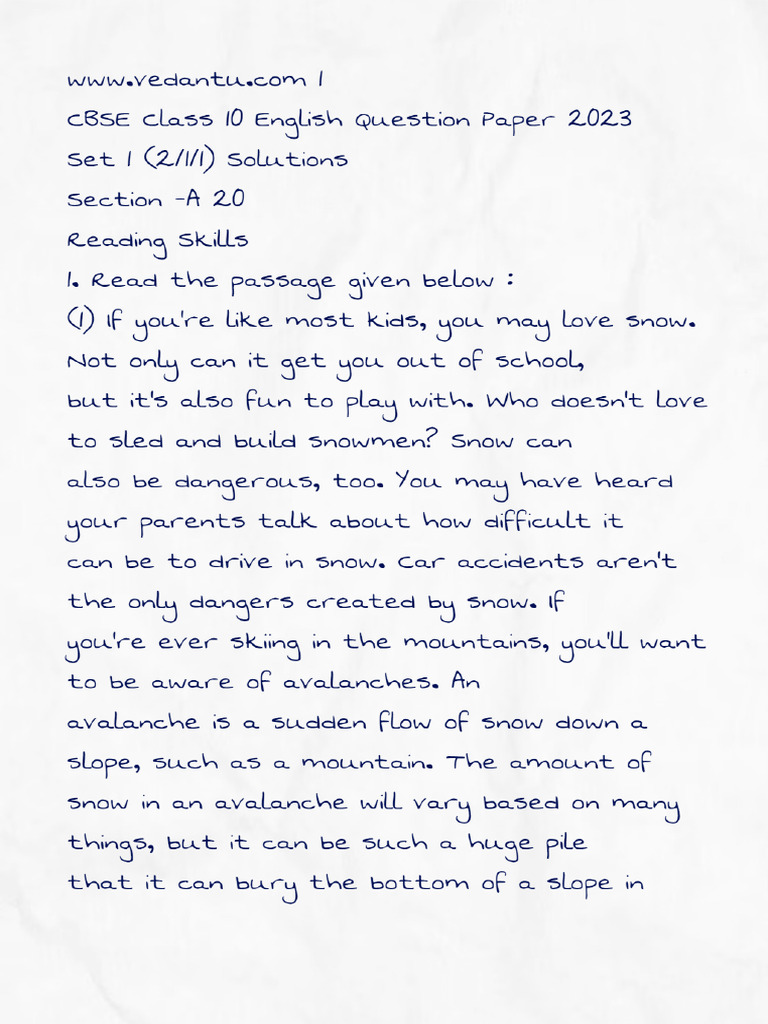 www.vedantu.com 1
CBSE Class 10 English Question Paper 2023
Set 1 (2/1/1) Solutions
Section -A 20
Reading Skills
1. Read the passage given below :
(1) If you're like most kids, you may love snow.
Not only can it get you out of school,
but it's also fun to play with. Who doesn't love
to sled and build snowmen? Snow can
also be dangerous, too. You may have heard
your parents talk about how difficult it
can be to drive in snow. Car accidents aren't
the only dangers created by snow. If
you're ever skiing in the mountains, you'll want
to be aware of avalanches. An
avalanche is a sudden flow of snow down a
slope, such as a mountain. The amount of
snow in an avalanche will vary based on many
things, but it can be such a huge pile
that it can bury the bottom of a slope in